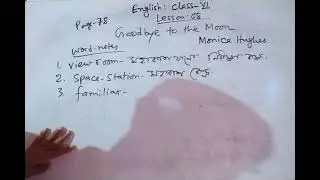 English: Class-VI
Page-78
Lesson:08
Goodbye to the Moon
Monica Hughes
Word-notes
1. view room- মহাকাশ
2. Space-Station- মহাকাশ কেন্দ্র
3. familiar-